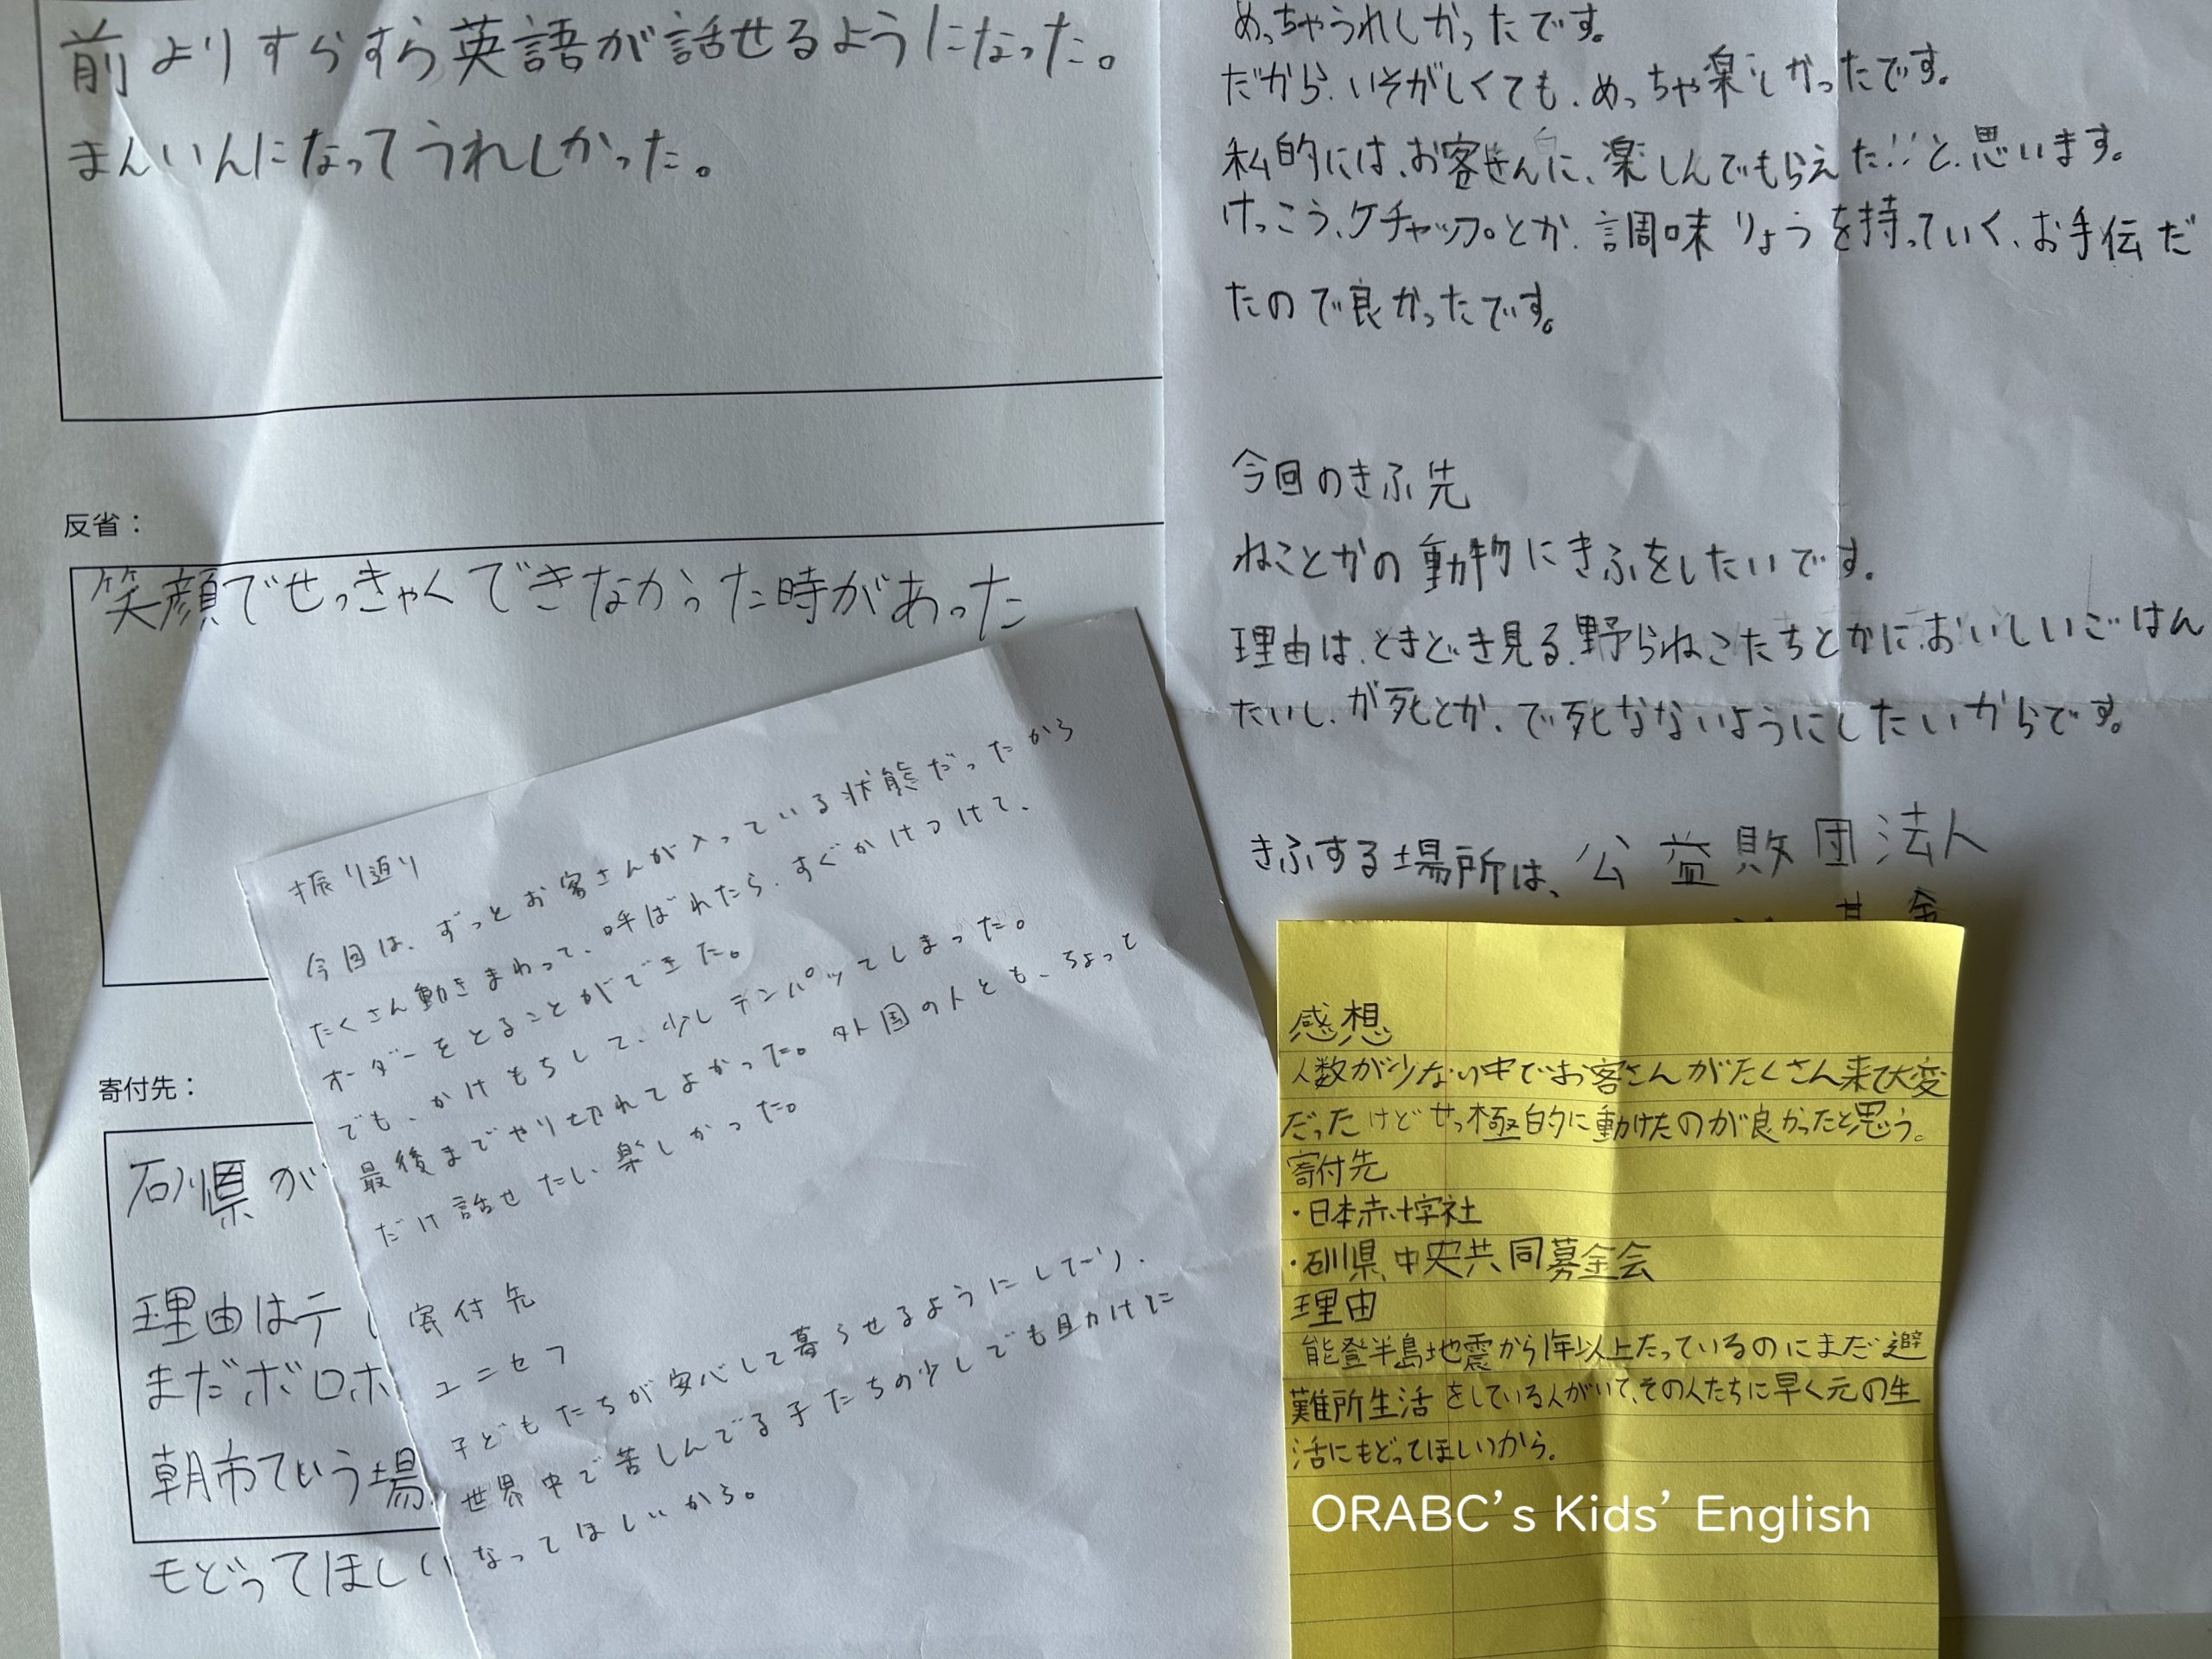 前よりすらすら英語が話せるようになった。
まんいんになってうれしかった。
反省：
笑顔でせっきゃくできなかった時があった
寄付先：
石川県が
理由はテ
まだボロボ
朝市ていう場
もどってほしい
振り返り
今回は、ずっとお客さんが入っている状態だったから
たくさん動きまわって、呼ばれたら、すぐかけつけて、
オーダーをとることができた。
でも、かけもちして、少しテンパッてしまった。
最後までやり切れてよかった。外国の人とも、ちょっと
だけ話せたし、楽しかった。
寄付先
ユニセフ
子どもたちが安心して暮らせるようにしてたり、
世界中で苦しんでる子たちの少しでも助けに
なってほしいから。
めっちゃうれしかったです。
だから、いそがしくても、めっちゃ楽しかったです。
私的には、お客さんに、楽しんでもらえた!!と、思います。
けっこう、ケチャップとか、調味りょうを持っていく、お手伝だ
たので良かったです。
今回のきふ先
ねことかの動物にきふをしたいです。
理由は、ときどき見る、野らねこたちとかに、おいしいごはん
たいし、が死とか、で死なないようにしたいからです。
きふする場所は、公益財団法人
基金
感想
人数が少ない中でお客さんがたくさん来て大変
だったけどせっ極的に動けたのが良かったと思う。
寄付先
・日本赤十字社
・石川県中央共同募金会
理由
能登半島地震から1年以上たっているのにまだ避
難所生活をしている人がいて、その人たちに早く元の生
活にもどってほしいから。
ORABC's Kids' English